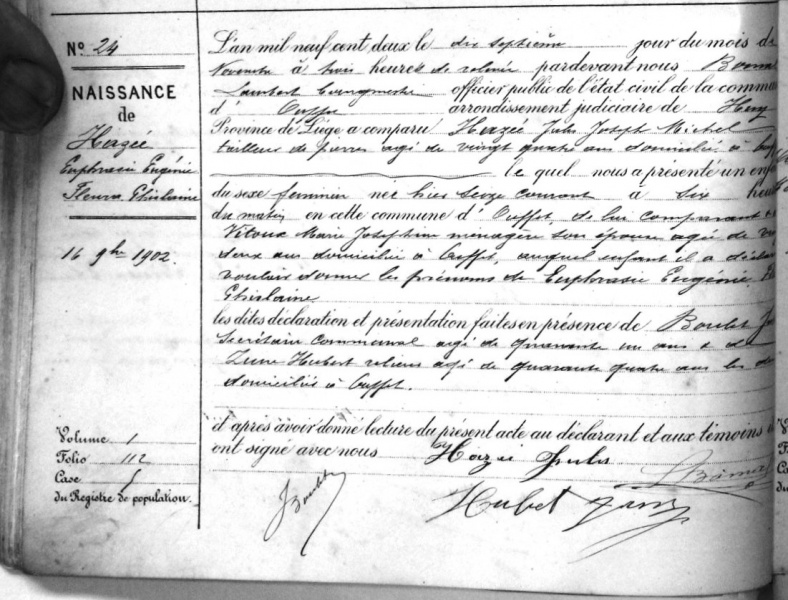 N° 24
NAISSANCE
de
Hazée
Euphrasie Eugénie
Fleure Ghislaine
16 9bre 1902.
Volume 1
Folio 112
Case
du Registre de population.
L'an mil neuf cent deux le dix septième jour du mois d
Novembre à trois heures de relevée pardevant nous
Lambert officier public de l'état civil de la commu
d' Ouffet arrondissement judiciaire de Huy
Province de Liége a comparu Hazée Jules Joseph Michel
tailleur de pierres agé de vingt quatre ans domicilié à
le quel nous a présenté un enf
du sexe féminin née hier seize courant à six heu
du matin en cette commune d' Ouffet, de lui comparant et
Marie Joséphine ménagère son épouse agée de
deux ans domiciliée à Ouffet, auquel enfant il a déclaré
vouloir donner les prénoms de Euphrasie Eugénie
Ghislaine
les dites déclaration et présentation faites en présence de Boulet
Secrétaire communal agé de quarante un ans et d
Hubert relieur agé de quarante quatre ans les
domiciliés à Ouffet.
et après avoir donné lecture du présent acte au déclarant et aux témoins
ont signé avec nous Hazée Jules
J Boulet
Hubet